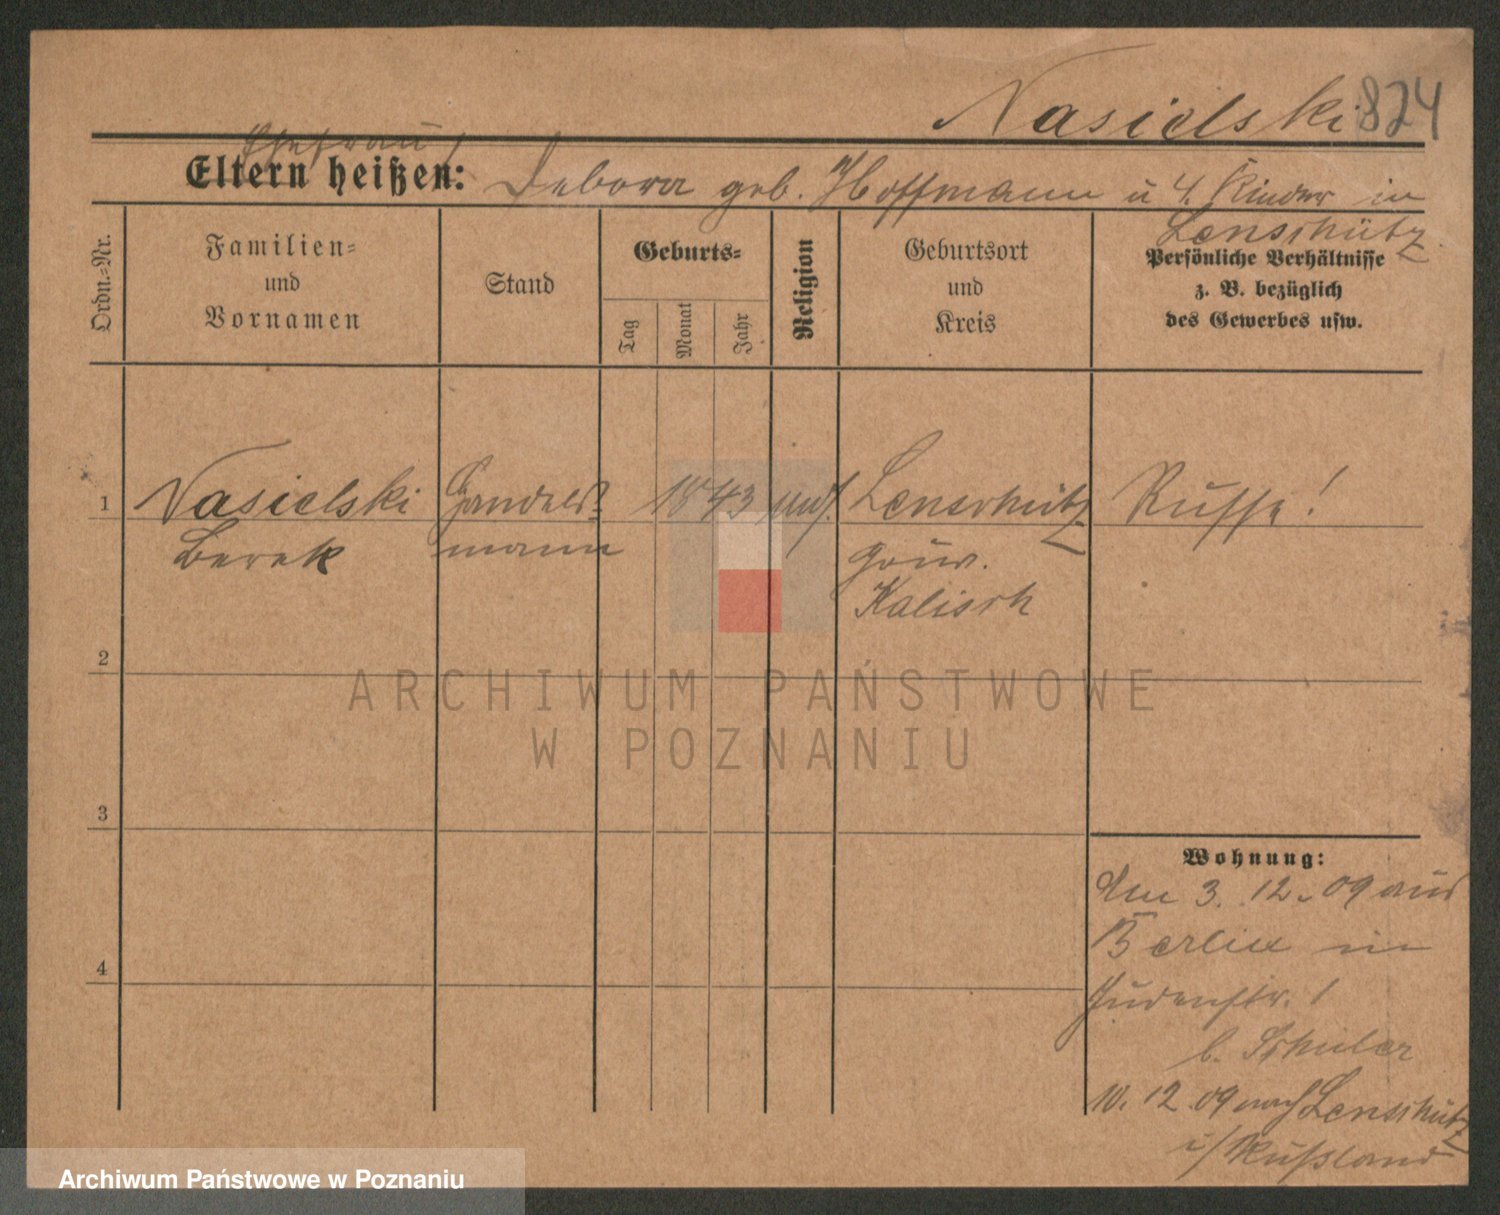 Nasielski 824
Ehefrau
Eltern heißen: Debora geb. Hoffmann u 4 Kinder in
Lenschütz
Ordn.=Nr.
Familien=
und
Vornamen
Stand
Geburts=
Tag
Monat
Jahr
Religion
Geburtsort
und
Kreis
Persönliche Verhältnisse
z. B. bezüglich
des Gewerbes usw.
1 Nasielski Handels= 1843 mos. Lenschütz Russe!
Berek mann Gouv.
Kalisch
2
ARCHIWUM PAŃSTWOWE
W POZNANIU
3
Wohnung:
Am 3. 12. 09 aus
Berlin in
Judenstr. 1
b. Schüler
4
10. 12. 09 nach Lenschütz
i/ Russland
Archiwum Państwowe w Poznaniu